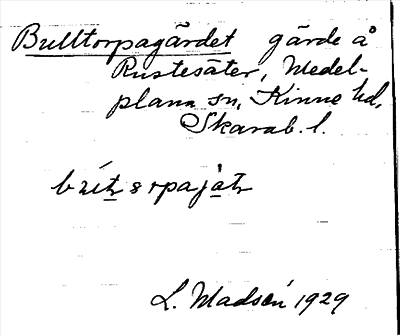 Bulltorpagärdet gärde å
Rustesäter, Medel-
plana sn, Kinne hd,
Skarab. l.
L. Madsén 1929